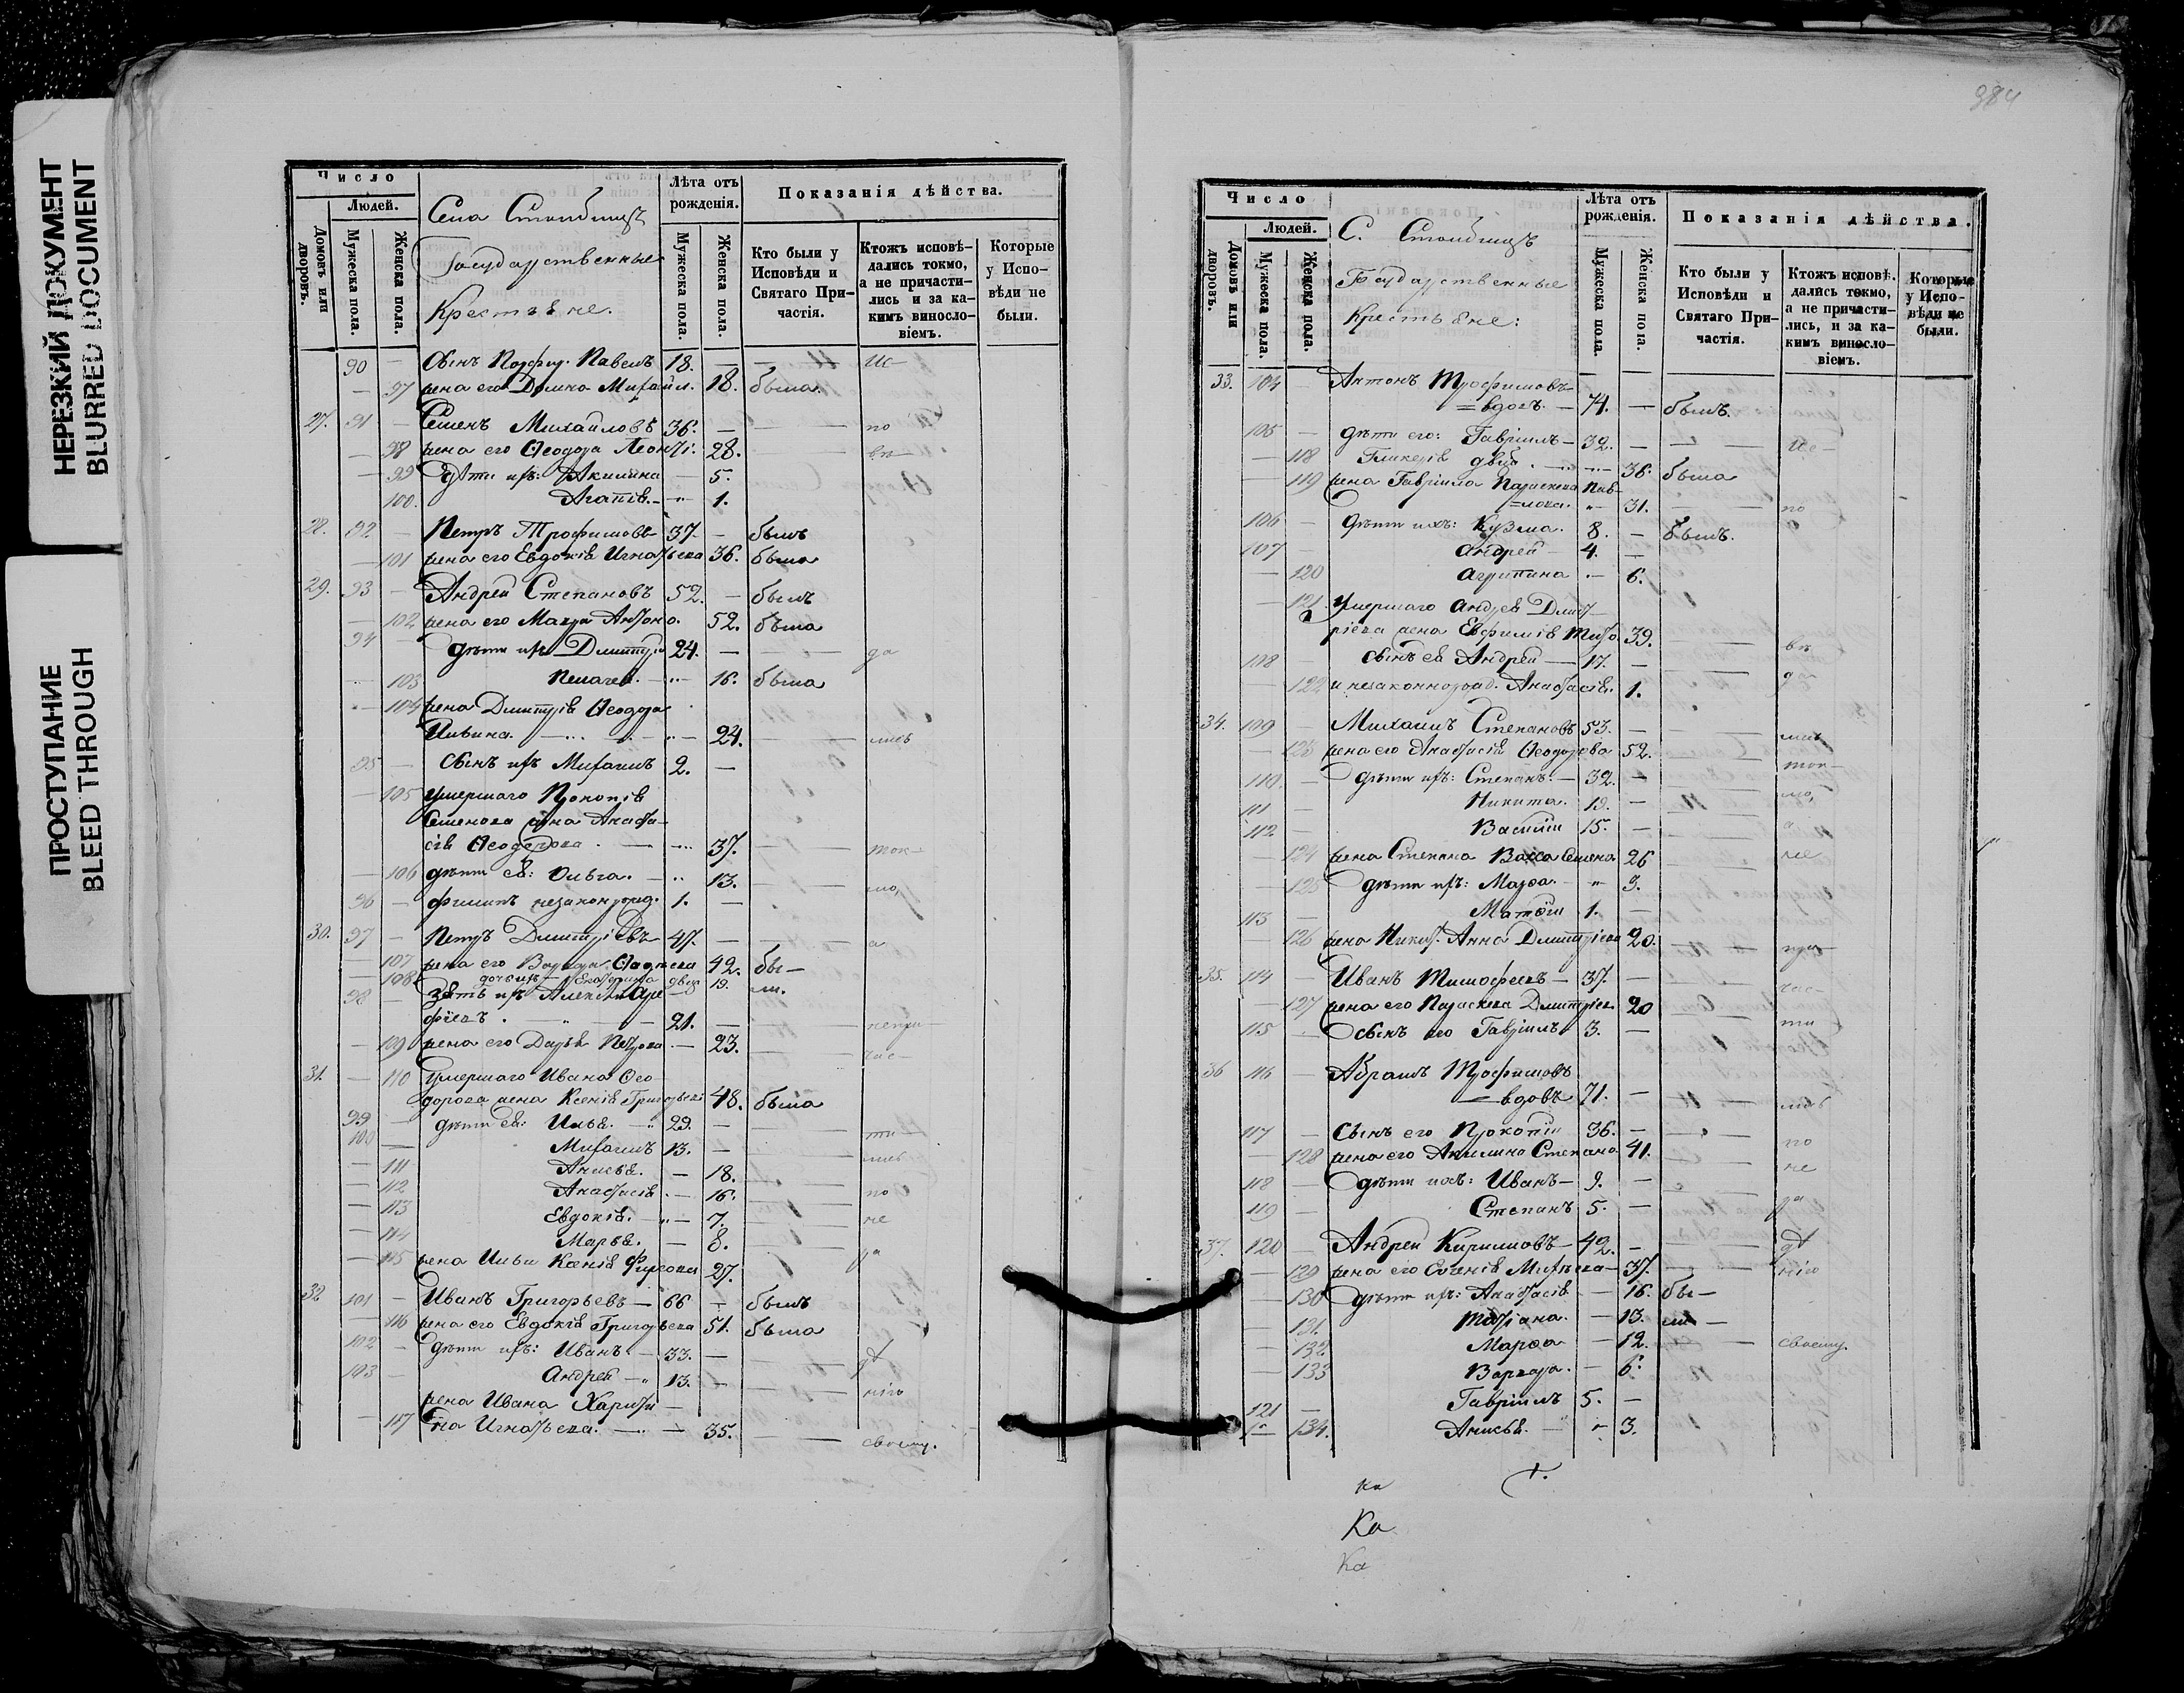 НЕРЕЗКИЙ ДОКУМЕНТ
BLURRED DOCUMENT
ПРОСТУПАНИЕ
BLEED THROUGH
Число
Людей.
Домовъ или дворовъ.
Мужеска пола.
Женска пола.
Села Столбищъ
Государственные
Крестьяне.
Лѣта отъ рожденія.
Мужеска пола.
Женска пола.
Показанія дѣйства.
Кто были у Исповѣди и Святаго Причастія.
Ктожъ исповѣдались токмо, а не причастились и за какимъ винословіемъ.
Которые у Исповѣди не были.
90 — Сынъ Порфир. Павелъ 18. — — Ис-
— 97 жена его Домна Михайл. 18. была
27. 91 — Семенъ Михайловъ 36. — — по
— 98 жена его Ѳеодора Леонті. 28. — вѣ-
— 99 Дѣти ихъ: Акилина — 5.
100. Агапія. — 1.
28. 92 — Петръ Трофимовъ 37. — былъ
— 101 жена его Евдокія Игнатьева 36. была
29. 93 — Андрей Степановъ 52. — былъ
— 102 жена его Мавра Антоно. 52. была
94 — дѣти ихъ Димитрій 24. — — да
— 103 Пелагея. — 16. была
— 104 жена Димитрія Ѳеодора
Ильина. — 24. — лись
95 — Сынъ ихъ Михаилъ 2. —
— 105 умершаго Прокопія
Семенова жена Анаста-
сія Ѳеодорова — 37. — ток-
— 106 дѣти ея: Ольга. — 13. — мо,
96 — Филипъ незаконорожд. 1. —
30. 97 — Петръ Димитріевъ 47. — — а
— 107 жена его Варвара 42. бы-
— 108 дочь ихъ — Екатерина двца 19. ли.
98 — Зять ихъ Алексѣй Аре-
фіевъ. — 21. — — непри-
— 109 жена его Дарья Петрова — 23. — час-
31. — 110 Умершаго Ивана Ѳео-
дорова жена Ксенія Григорьева 48. была
99 — дѣти ея: Илья. — 29. —
100 — Михаилъ 13. — — ти-
— 111 Анисья. — 18. лись
— 112 Анастасія — 16. — по
— 113 Евдокія. — 7. — не
— 114 Марья. — 8.
— 115 жена Ильи Ксенія Фирсова 27. — ра
32 101 — Иванъ Григорьевъ — 66 — былъ
— 116 жена его Евдокія Григорьева 51. была
102 — дѣти ихъ: Иванъ. — 33. —
103 — Андрей — 13. — дѣ
жена Ивана Харити- нію
— 117 на Игнатьева. — 35. — своему.
984
Число
Людей.
Домовъ или дворовъ.
Мужеска пола.
Женска пола.
С. Столбищъ
Государственные
Крестьяне:
Лѣта отъ рожденія.
Мужеска пола.
Женска пола.
Показанія дѣйства.
Кто были у Исповѣди и Святаго Причастія.
Ктожъ исповѣдались токмо, а не причастились, и за какимъ винословіемъ.
Которые у Исповѣди не были.
33. 104 — Антонъ Трофимовъ
= вдовъ. — 74. — былъ.
105 — дѣти его: Гавріилъ — 32. — — Ис-
— 118 Гликерія двца. — 36. была
— 119 жена Гавріила Параскева Пав-
=лова. — 31. — по
106 — дѣти ихъ: Кузма. 8. — былъ.
107 Андрей — 4. —
— 120 Агрипина — 6.
— 121 Умершаго Андрея Димит-
ріева жена Евфимія 39. — вѣ
108 — Сынъ ея Андрей — 17. —
— 122 и незаконнорожд. Анастасія. 1. — да
34. 109 — Михаилъ Степановъ 53. — — лись
— 123 жена его Анастасія Ѳеодорова 52. — ток-
110 — дѣти ихъ: Степанъ. — 32. — мо,
111 — Никита. 19. —
112 — Василій 15. — а
— 124 жена Степана Васса Семено 26 не
— 125 дѣти ихъ: Марѳа. — 3.
113 — Матѳій 1. —
— 126 жена Никит. Анна Димитріева 20. при-
35. 114 Иванъ Тимофеевъ — 37. —
— 127 жена его Параскева Димитріев. 20 час-
115 — Сынъ его Гавріилъ 3. — ти
36 116 — Абрамъ Трофимовъ
= вдовъ 71. — лись
117 — Сынъ его Прокопій 36. — по
— 128 жена его Акилина Степано 41. не
118 — дѣти ихъ: Иванъ — 9. —
119 — Степанъ 5. — ра
37. 120 — Андрей Кириловъ — 42. — дѣ
— 129 жена его Евгенія — 37. — нію
— 130 дѣти ихъ: Анастасія — 16. бы-
— 131. Татіана. — 13. ли —
— 132 Марѳа — 12. — своему.
— 133 Варвара. — 6.
121 — Гавріилъ 5. —
— 134. Анисья. — 3.
ка
Ка
Ка